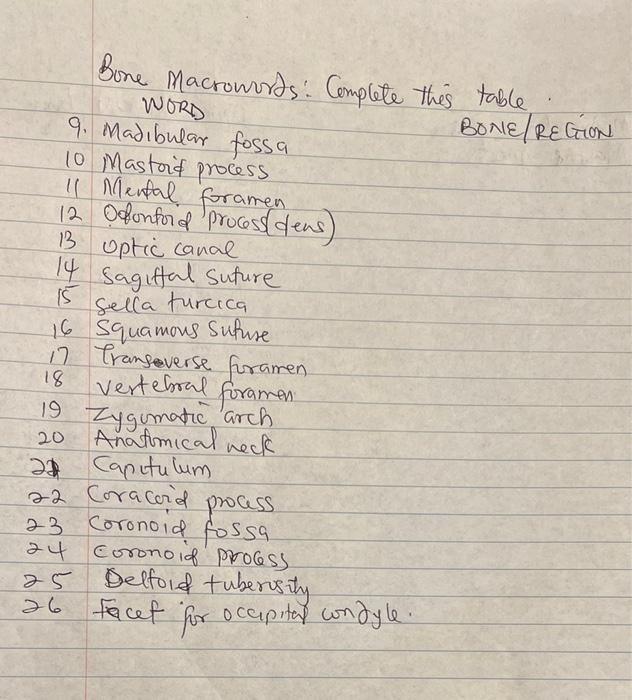 Bone Macrowords: Complete this table.
WORD BONE/REGION
9. Madibular fossa
10 Mastoid process
11 Mental foramen
12 Odontoid process (dens)
13 Optic canal
14 Sagittal suture
15 Sella turcica
16 Squamous suture
17 Transverse foramen
18 Vertebral foramen
19 Zygomatic arch
20 Anatomical neck
21 Capitulum
22 Coracoid process
23 Coronoid fossa
24 Coronoid process
25 Deltoid tuberosity
26 Facet for occipital condyle.